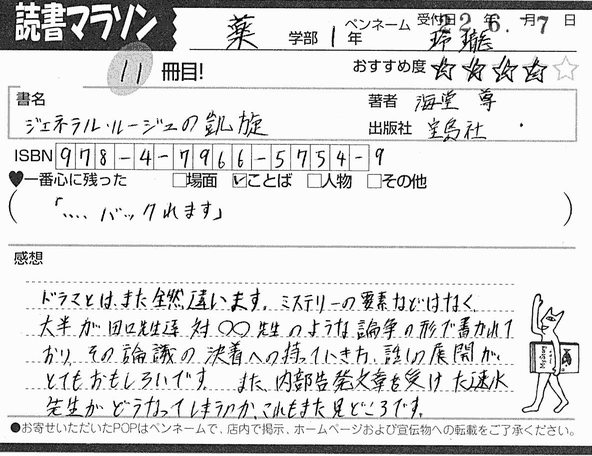 読書マラソン
薬 学部 1年 ペンネーム 玲瓏 受付日 22年 6.月 -7日
11 冊目! おすすめ度 ★★★★☆
書名 ジェネラル・ルージュの凱旋
著者 海堂 尊
出版社 宝島社
ISBN 978-4-7966-5754-9
♥一番心に残った □場面 ☑ことば □人物 □その他
(「‥‥ バックれます」)
感想
ドラマとは、また全然違います。ミステリーの要素などはなく
大半が田口先生達 対 〇〇先生のような論争の形で書かれて
おり、その論議の決着への持っていき方、話の展開が、
とてもおもしろいです。また、内部告発文章を受けた速水
先生がどうなってしまうのか、これもまた見どころです。
●お寄せいただいたPOPはペンネームで、店内で掲示、ホームページおよび宣伝物への転載をご了承ください。